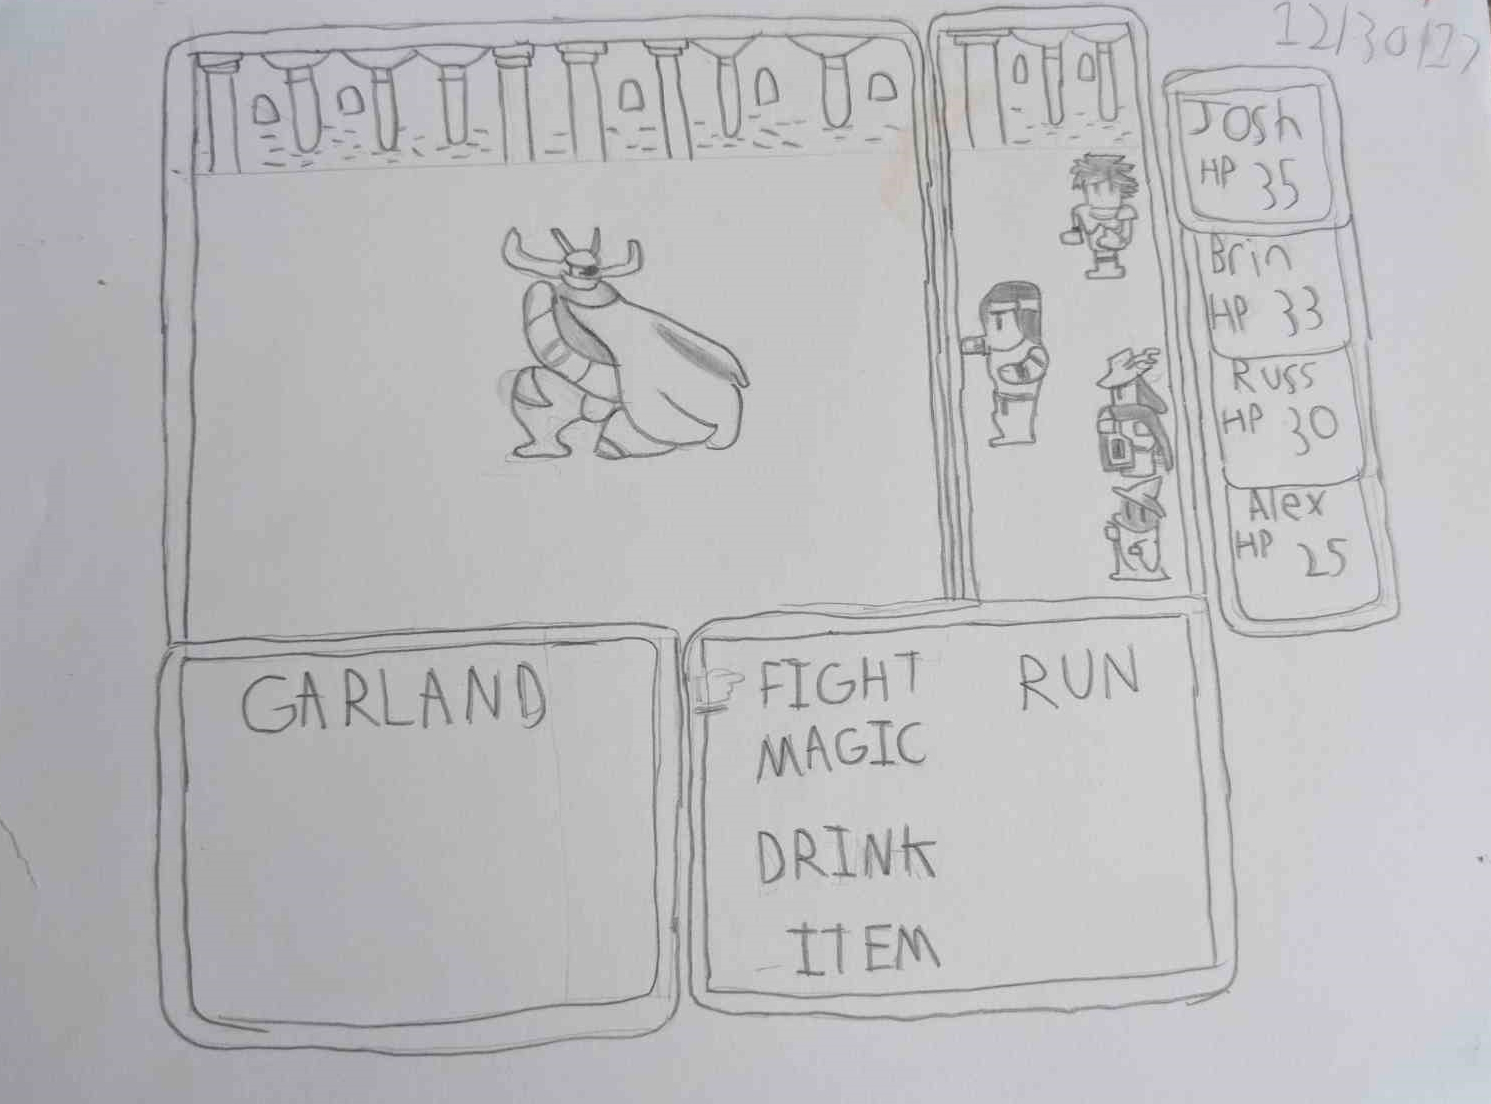 12/30/27
Josh
HP 35
Brin
HP 33
Russ
HP 30
Alex
HP 25
GARLAND
FIGHT RUN
MAGIC
DRINK
ITEM